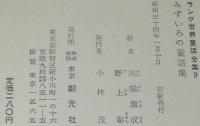 ラング世界童話全集9
みずいろの童話集
昭和三十四年一月十日 初版発行
訳者 川端康成
野上彰
発行者 小林茂
発行所 株式会社 東京創元社
東京都新宿区新小川町一ノ一六
定価二八〇円